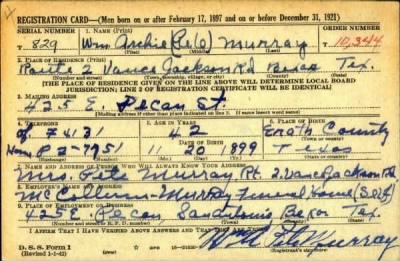 REGISTRATION CARD—(Men born on or after February 17, 1897 and on or before December 31, 1921)
SERIAL NUMBER 1. NAME (Print) ORDER NUMBER
T 829 Wm Archie Pete Murray T 10,344
2. PLACE OF RESIDENCE (Print)
Route 2 Vance Jackson Rd Bexar Tex.
(Number and street) (Town, township, village, or city) (County) (State)
[THE PLACE OF RESIDENCE GIVEN ON THE LINE ABOVE WILL DETERMINE LOCAL BOARD
JURISDICTION; LINE 2 OF REGISTRATION CERTIFICATE WILL BE IDENTICAL]
3. MAILING ADDRESS
425 E. Pecan St
[Mailing address if other than place indicated on line 2. If same insert word same]
4. TELEPHONE 5. AGE IN YEARS 6. PLACE OF BIRTH
F 4131 42 Erath County
DATE OF BIRTH
P2-7951 11 20 1899 Texas
7. NAME AND ADDRESS OF PERSON WHO WILL ALWAYS KNOW YOUR ADDRESS
Mrs. Pete Murray Rt. 2, Vance Jackson Rd
8. EMPLOYER'S NAME AND ADDRESS
McCollum-Murray Funeral Home (Self)
9. PLACE OF EMPLOYMENT OR BUSINESS
425 E. Pecan, San Antonio Bexar Tex.
(Number and street or R. F. D. number) (Town) (County) (State)
I AFFIRM THAT I HAVE VERIFIED ABOVE ANSWERS AND THAT THEY ARE TRUE.
D. S. S. Form 1
(Revised 1-1-42) (over)
Wm Pete Murray
(Registrant's signature)